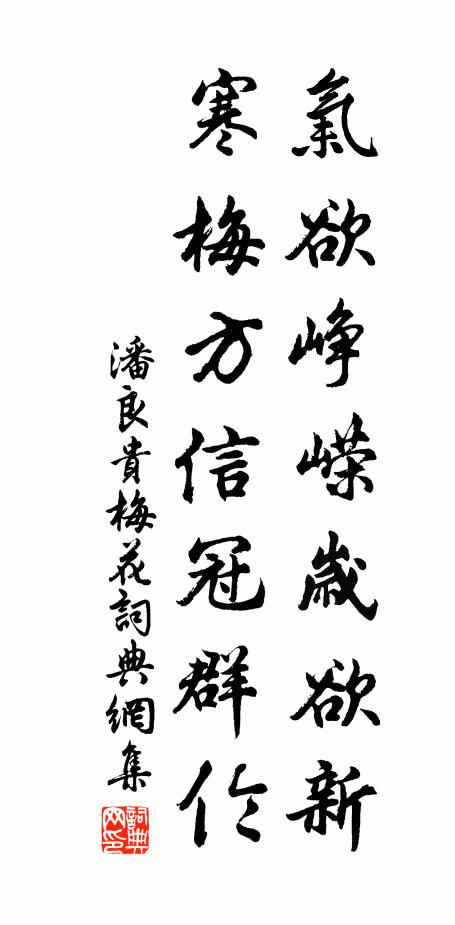 氣欲崢嶸歲欲新
寒梅方信冠群倫
潘良貴梅花詞典網集
詞典
网印